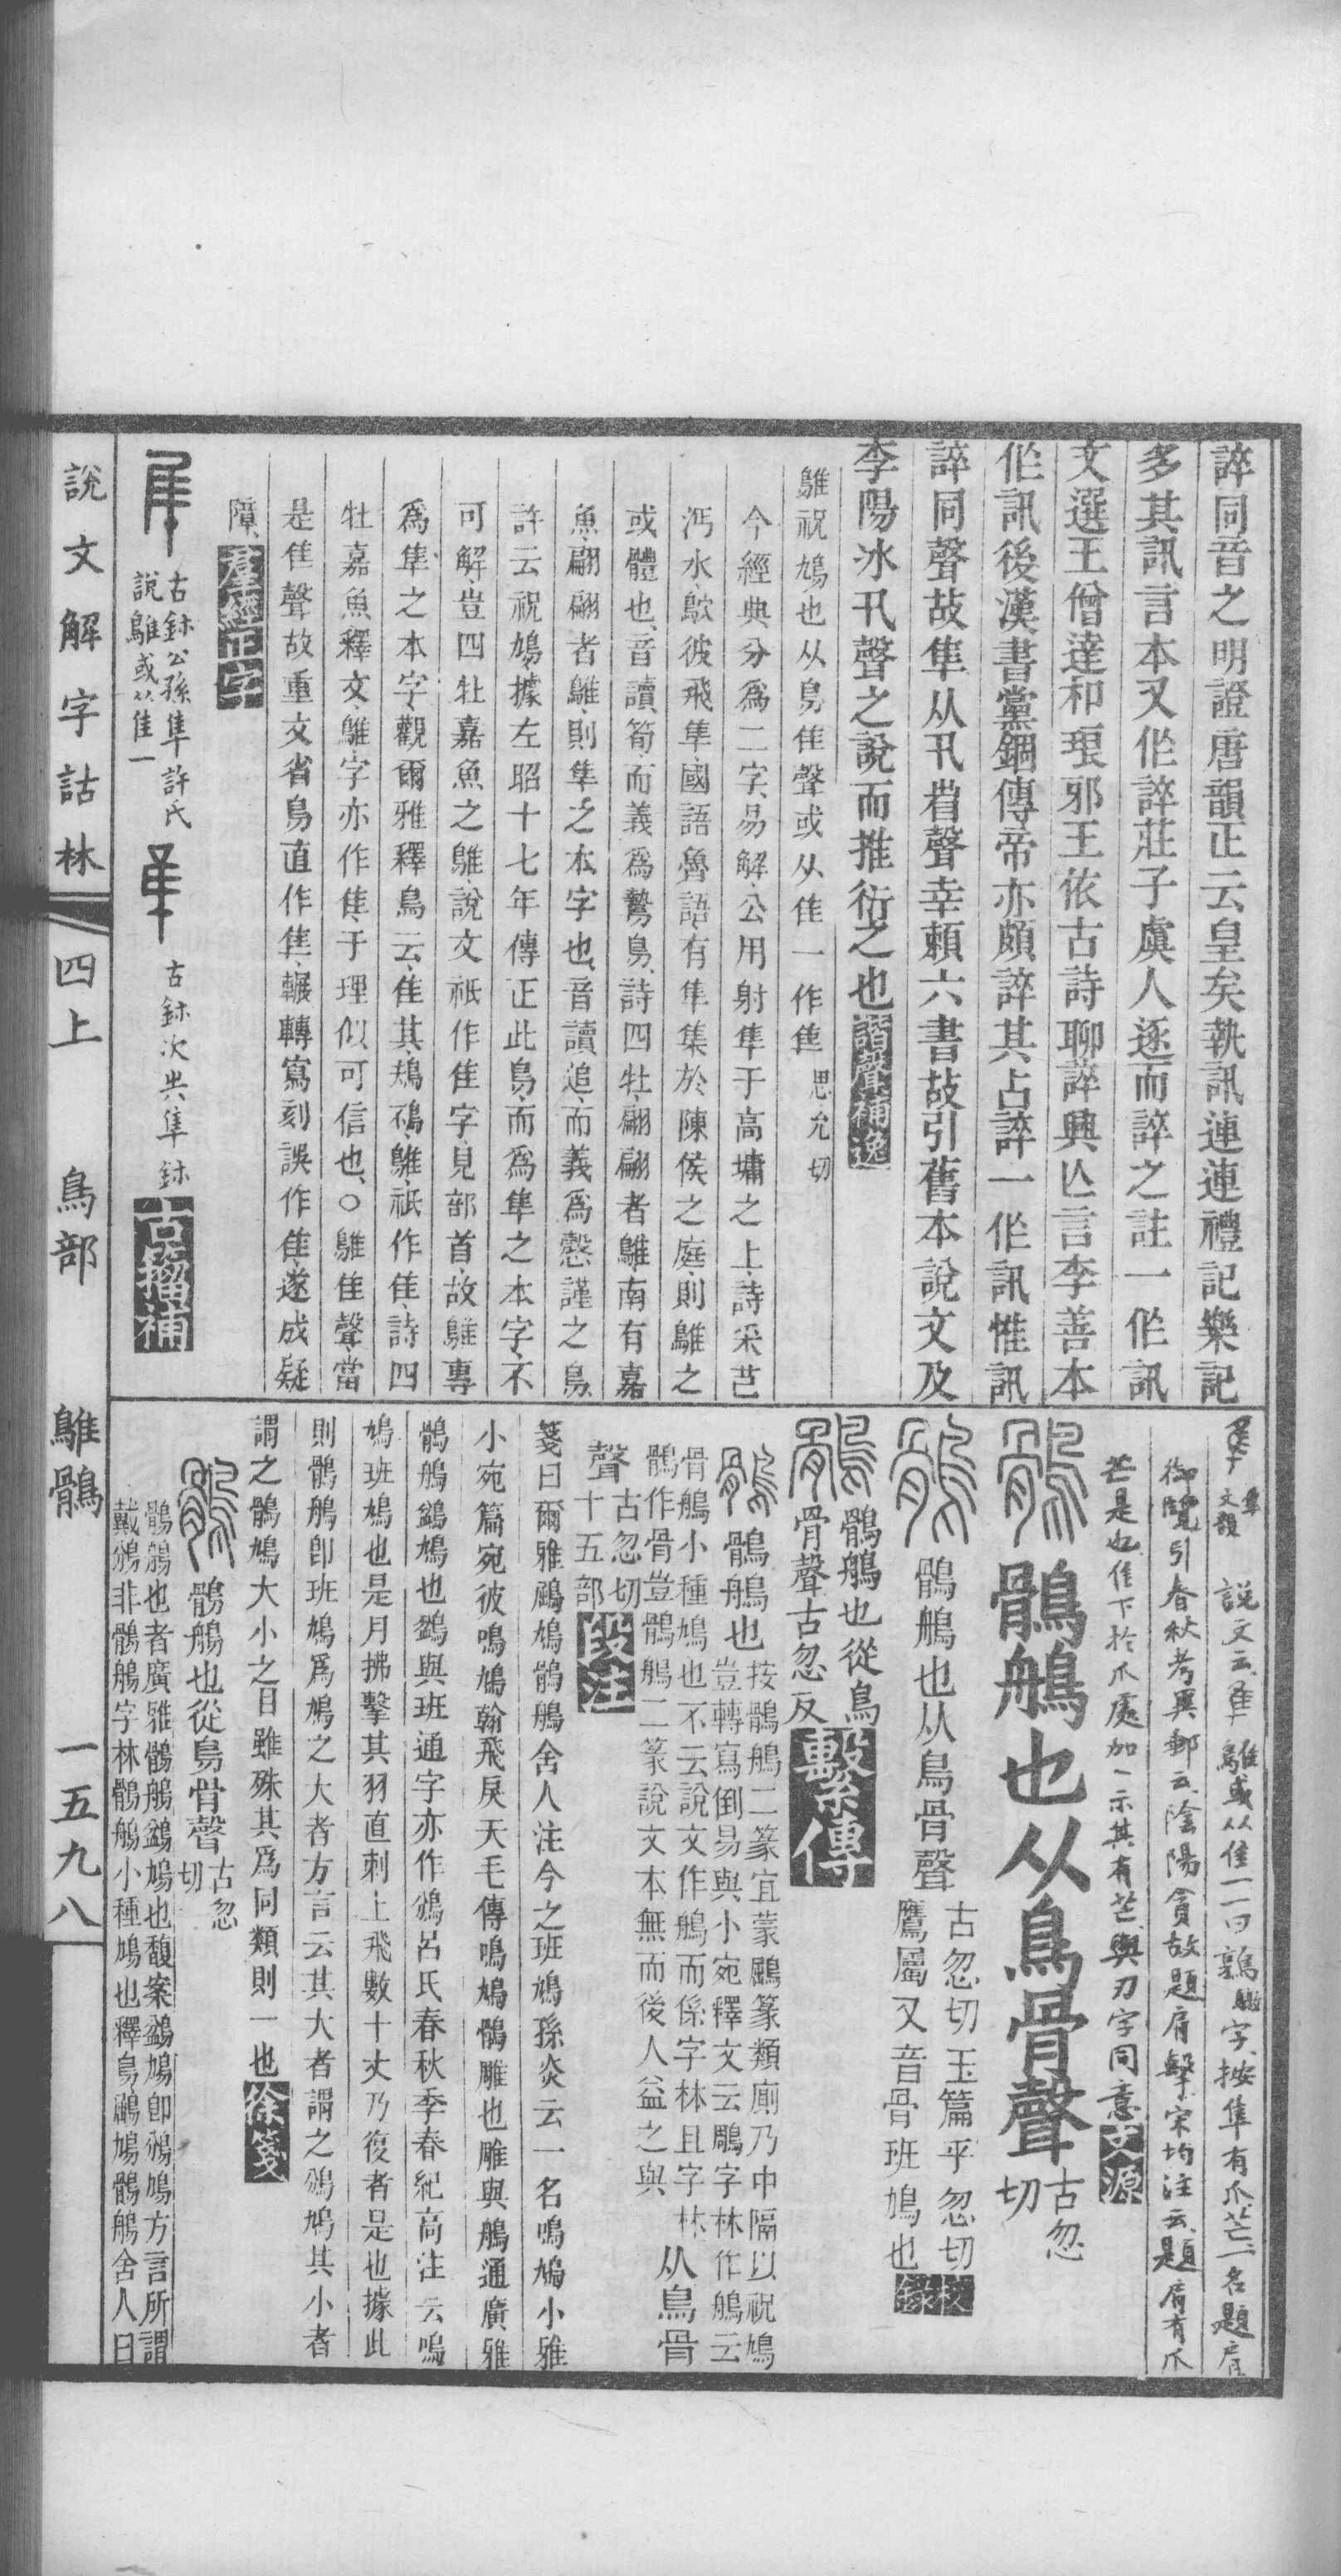 誶同音之明證唐韻正云皇矣執訊連連禮記樂記
多其訊言本又作誶莊子虞人逐而誶之註一作訊
文選王僧達和琅邪王依古詩聊誶興亡言李善本
作訊後漢書黨錮傳帝亦頗誶其占誶一作訊惟訊
誶同聲故隼从卂省聲幸賴六書故引舊本說文及
李陽冰卂聲之說而推衍之也諧聲補逸
鵻祝鳩也从鳥隹聲或从隹一作隼思允切
今經典分爲二字易解公用射隼于高墉之上詩采芑
沔水鴥彼飛隼國語魯語有隼集於陳侯之庭則鵻之
或體也音讀筍而義爲鷙鳥詩四牡翩翩者鵻南有嘉
魚翩翩者鵻則隼之本字也音讀追而義爲愨謹之鳥
許云祝鳩據左昭十七年傳正此鳥而爲隼之本字不
可解豈四牡嘉魚之鵻說文祇作隹字見部首故鵻專
爲隼之本字觀爾雅釋鳥云隹其鳺鴀鵻祇作隹詩四
牡嘉魚釋文鵻字亦作隹于理似可信也○鵻隹聲當
是隹聲故重文省鳥直作隼輾轉寫刻誤作隹遂成疑
障羣經正字
古鉨公孫隼許氏
說鵻或从隹一
古鉨次共隼鉨古籀補
說文云隼鵻或从隹一一曰鶉字按隼有爪芒一名題肩
御覽引春秋考異郵云陰陽貪故題肩擊宋均注云題肩有爪
芒是也隹下於爪處加一示其有芒與刃字同意文源
鶻鵃也从鳥骨聲古忽切
鶻鵃也从鳥骨聲古忽切玉篇乎忽切
鷹屬又音骨班鳩也校錄
鶻鵃也從鳥
骨聲古忽反繫傳
鶻鵃也按鶻鵃二篆宜蒙鶌篆類廁乃中隔以祝鳩
豈轉寫倒易與小宛釋文云鵰字林作鵃云
骨鵃小種鳩也不云說文作鵃而係字林且字林
鶻作骨豈鶻鵃二篆說文本無而後人益之與从鳥骨
聲古忽切
十五部段注
箋曰爾雅鶌鳩鶻鵃舍人注今之班鳩孫炎云一名鳴鳩小雅
小宛篇宛彼鳴鳩翰飛戾天毛傳鳴鳩鶻雕也雕與鵃通廣雅
鶻鵃鷭鳩也鷭與班通字亦作鳻呂氏春秋季春紀高注云鳴
鳩班鳩也是月拂擊其羽直刺上飛數十丈乃復者是也據此
則鶻鵃卽班鳩爲鳩之大者方言云其大者謂之鳻鳩其小者
謂之鶻鳩大小之目雖殊其爲同類則一也徐箋
鶻鵃也從鳥骨聲古忽切
鶻鵃也者廣雅鶻鵃鷭鳩也馥案鷭鳩卽鳻鳩方言所謂
戴鳻非鶻鵃字林鶻鵃小種鳩也釋鳥鶌鳩鶻鵃舍人曰
說文解字詁林 四上 鳥部 鵻鶻 一五九八